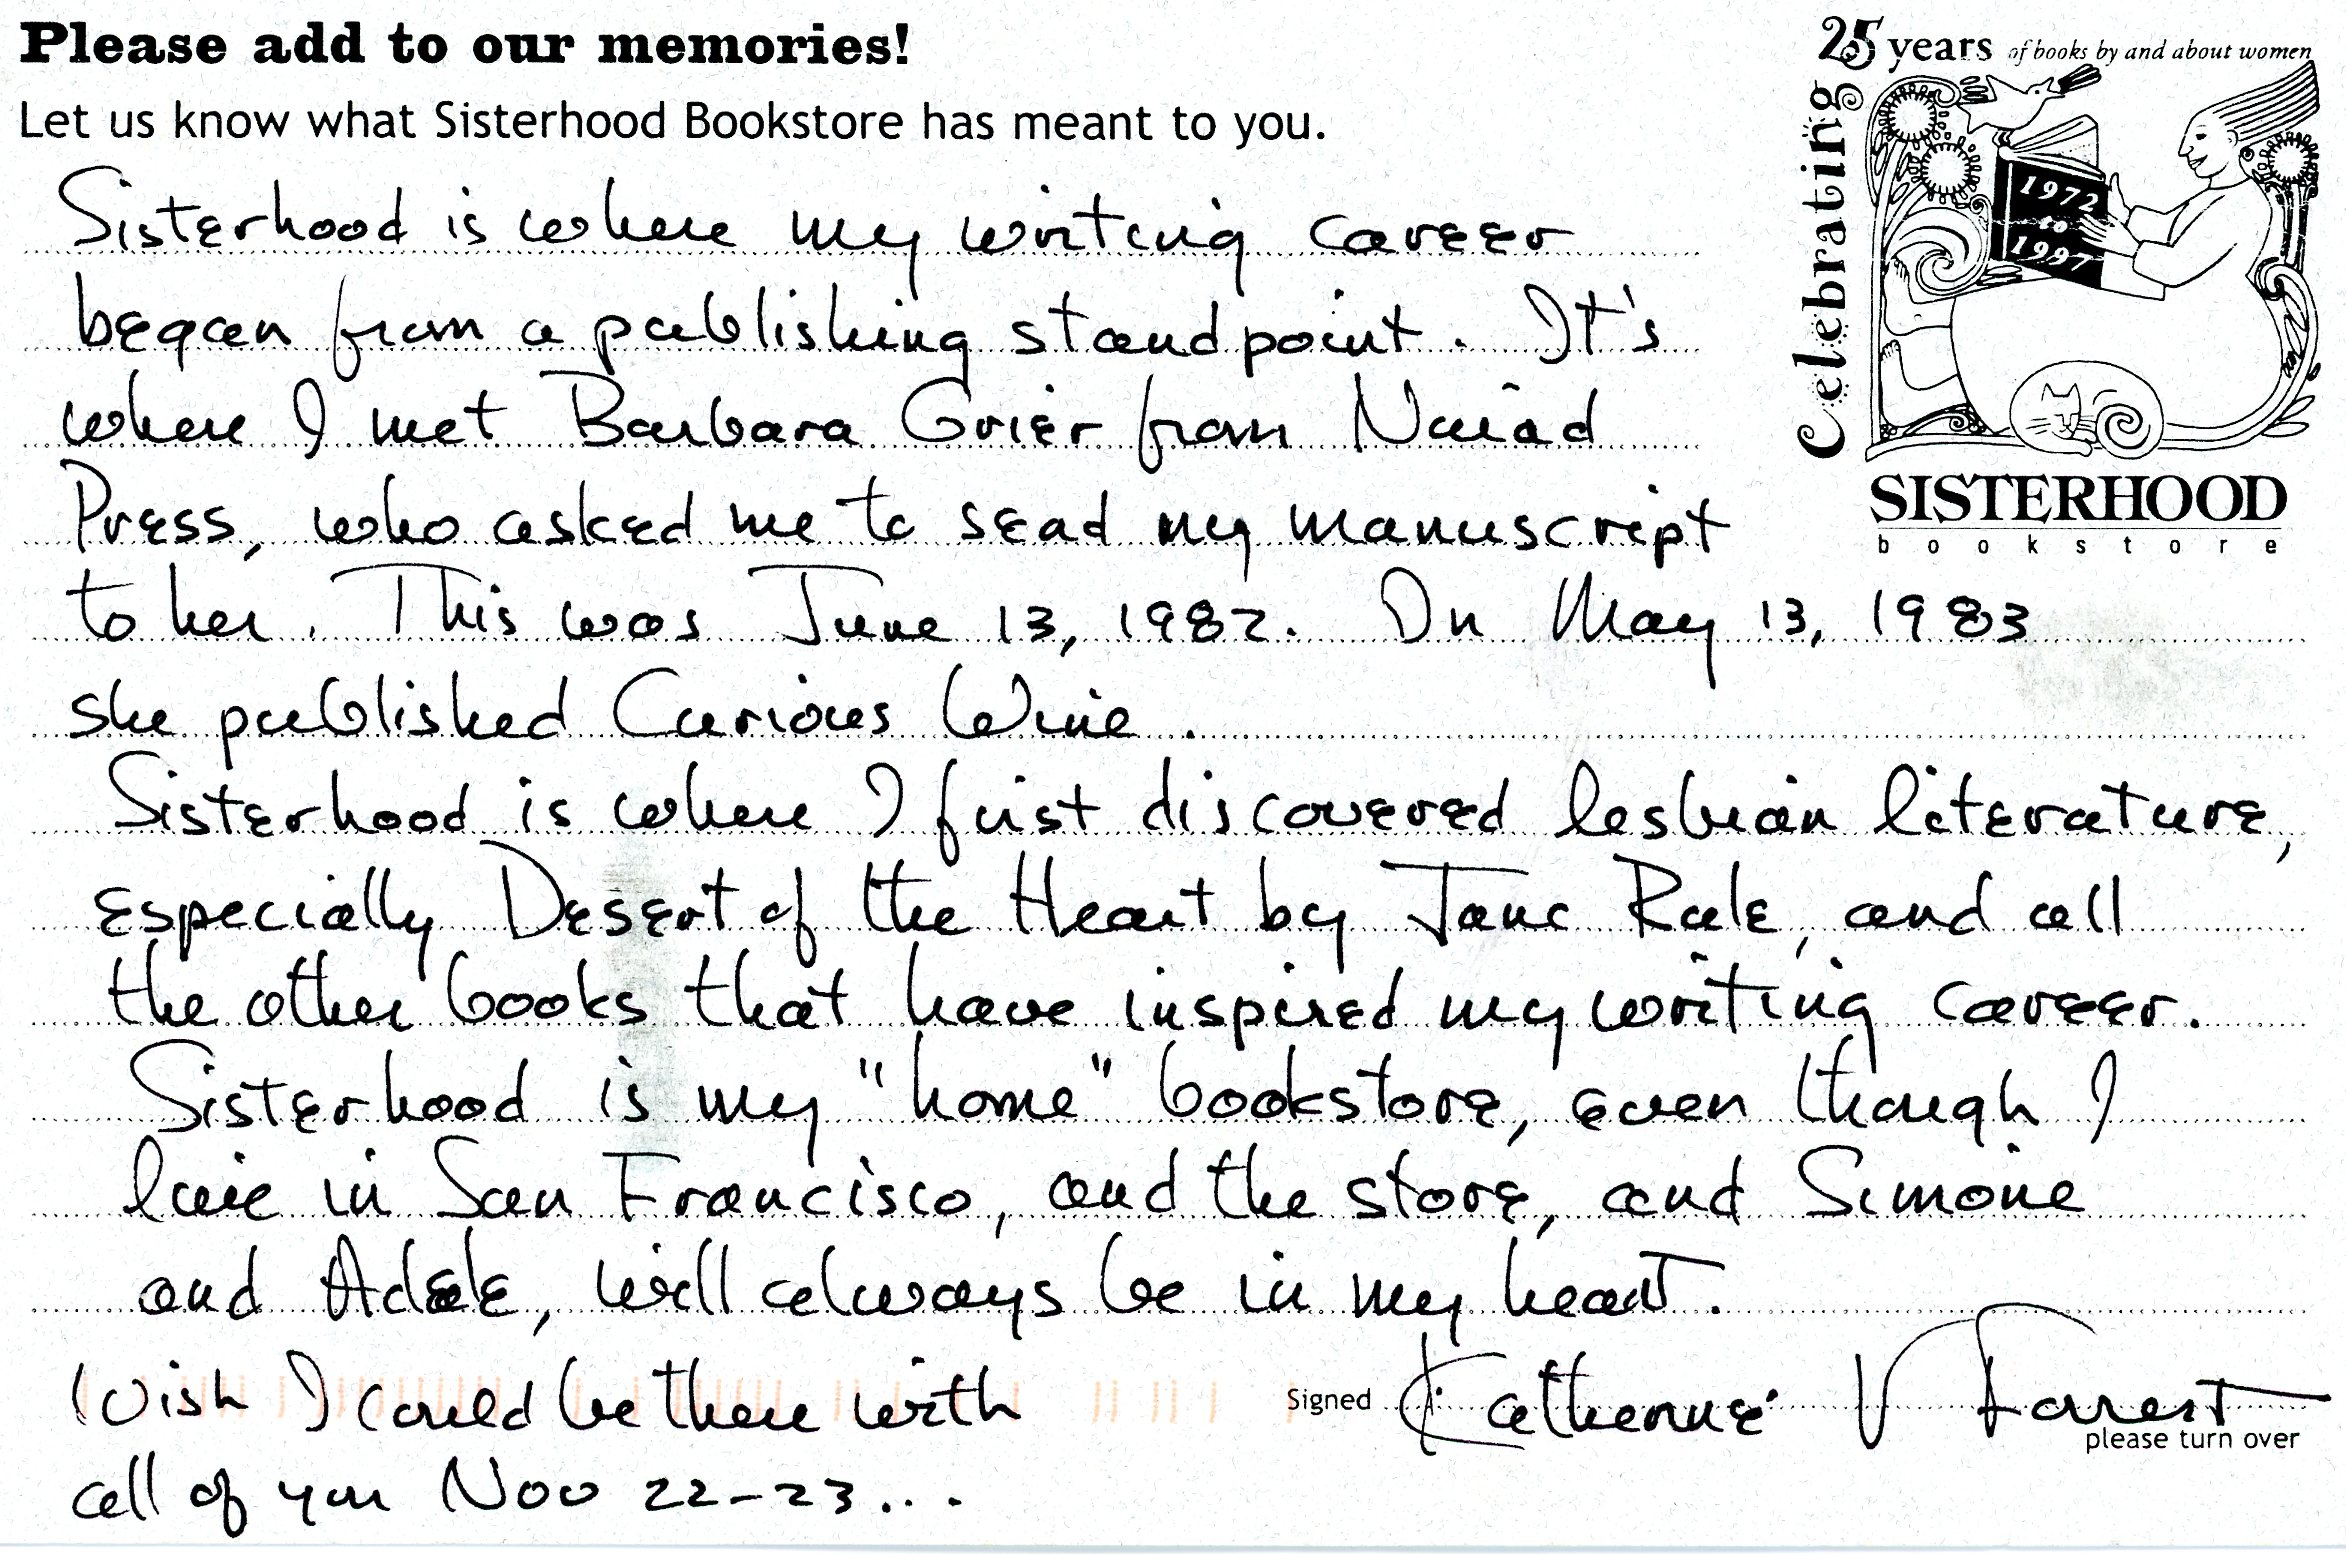 Please add to our memories!
Let us know what Sisterhood Bookstore has meant to you.
25 years of books by and about women
Celebrating
1972
to
1997
SISTERHOOD
bookstore
Sisterhood is where my writing career
began from a publishing standpoint. It's
where I met Barbara Grier from Naiad
Press, who asked me to send my manuscript
to her. This was June 13, 1982. On May 13, 1983
she published Curious Wine.
Sisterhood is where I first discovered lesbian literature,
especially Desert of the Heart by Jane Rule, and all
the other books that have inspired my writing career.
Sisterhood is my "home" bookstore, even though I
live in San Francisco, and the store, and Simone
and Adele, will always be in my heart.
Wish I could be there with
all of you Nov 22-23...
Signed Katherine V Forrest
please turn over